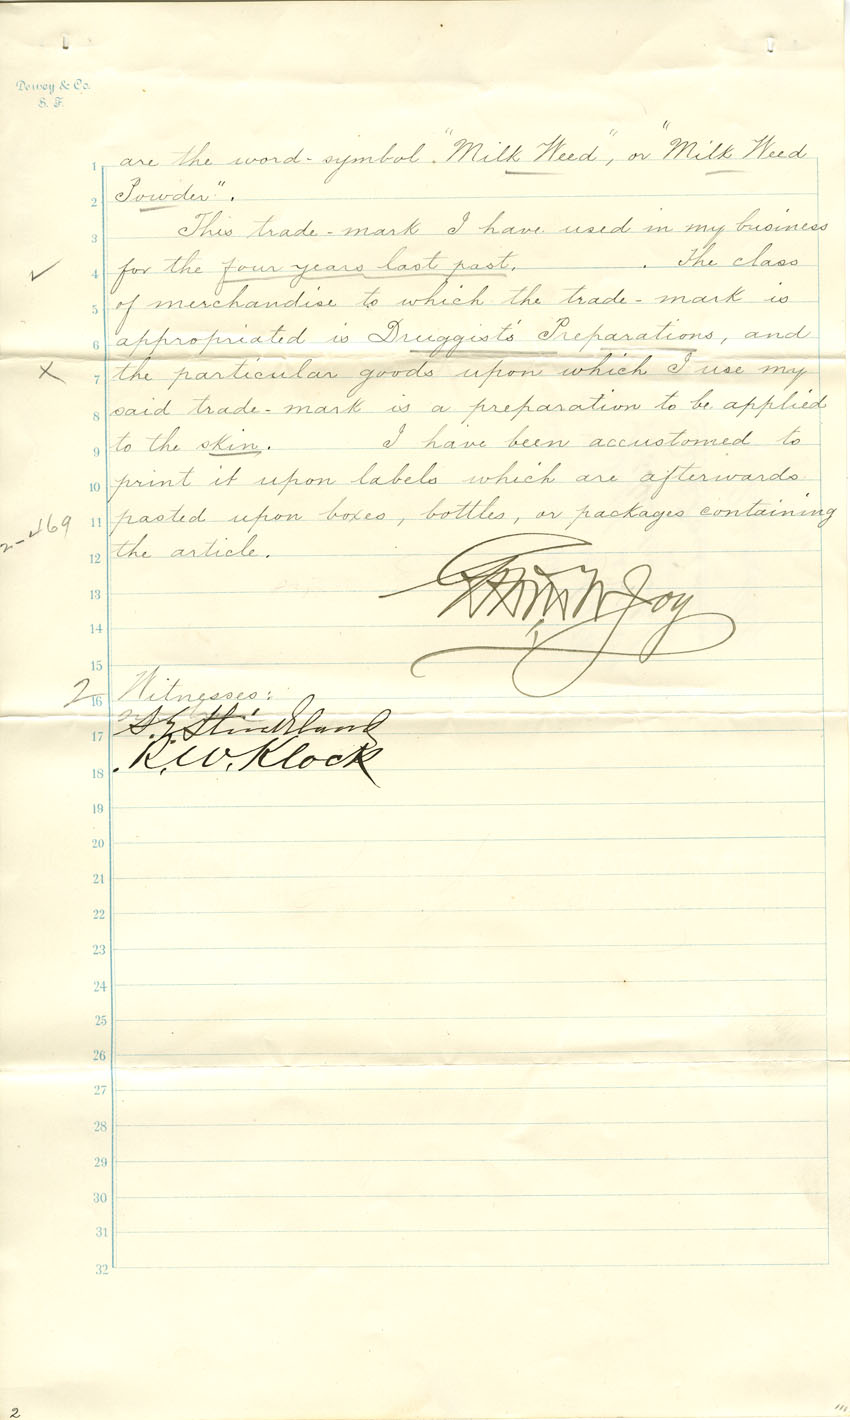 Dewey & Co.
S. F.
1 are the word-symbol "Milk Weed", or "Milk Weed
2 Powder".
3 This trade-mark I have used in my business
4 for the four years last past. . The class
5 of merchandise to which the trade-mark is
6 appropriated is Druggist's Preparations, and
7 the particular goods upon which I use my
8 said trade-mark is a preparation to be applied
9 to the skin. I have been accustomed to
10 print it upon labels which are afterwards
11 pasted upon boxes, bottles, or packages containing
12 the article.
13 Joy
14
15
2 16 Witnesses:
17
18 R. W. Klock
19
20
21
22
23
24
25
26
27
28
29
30
31
32
2